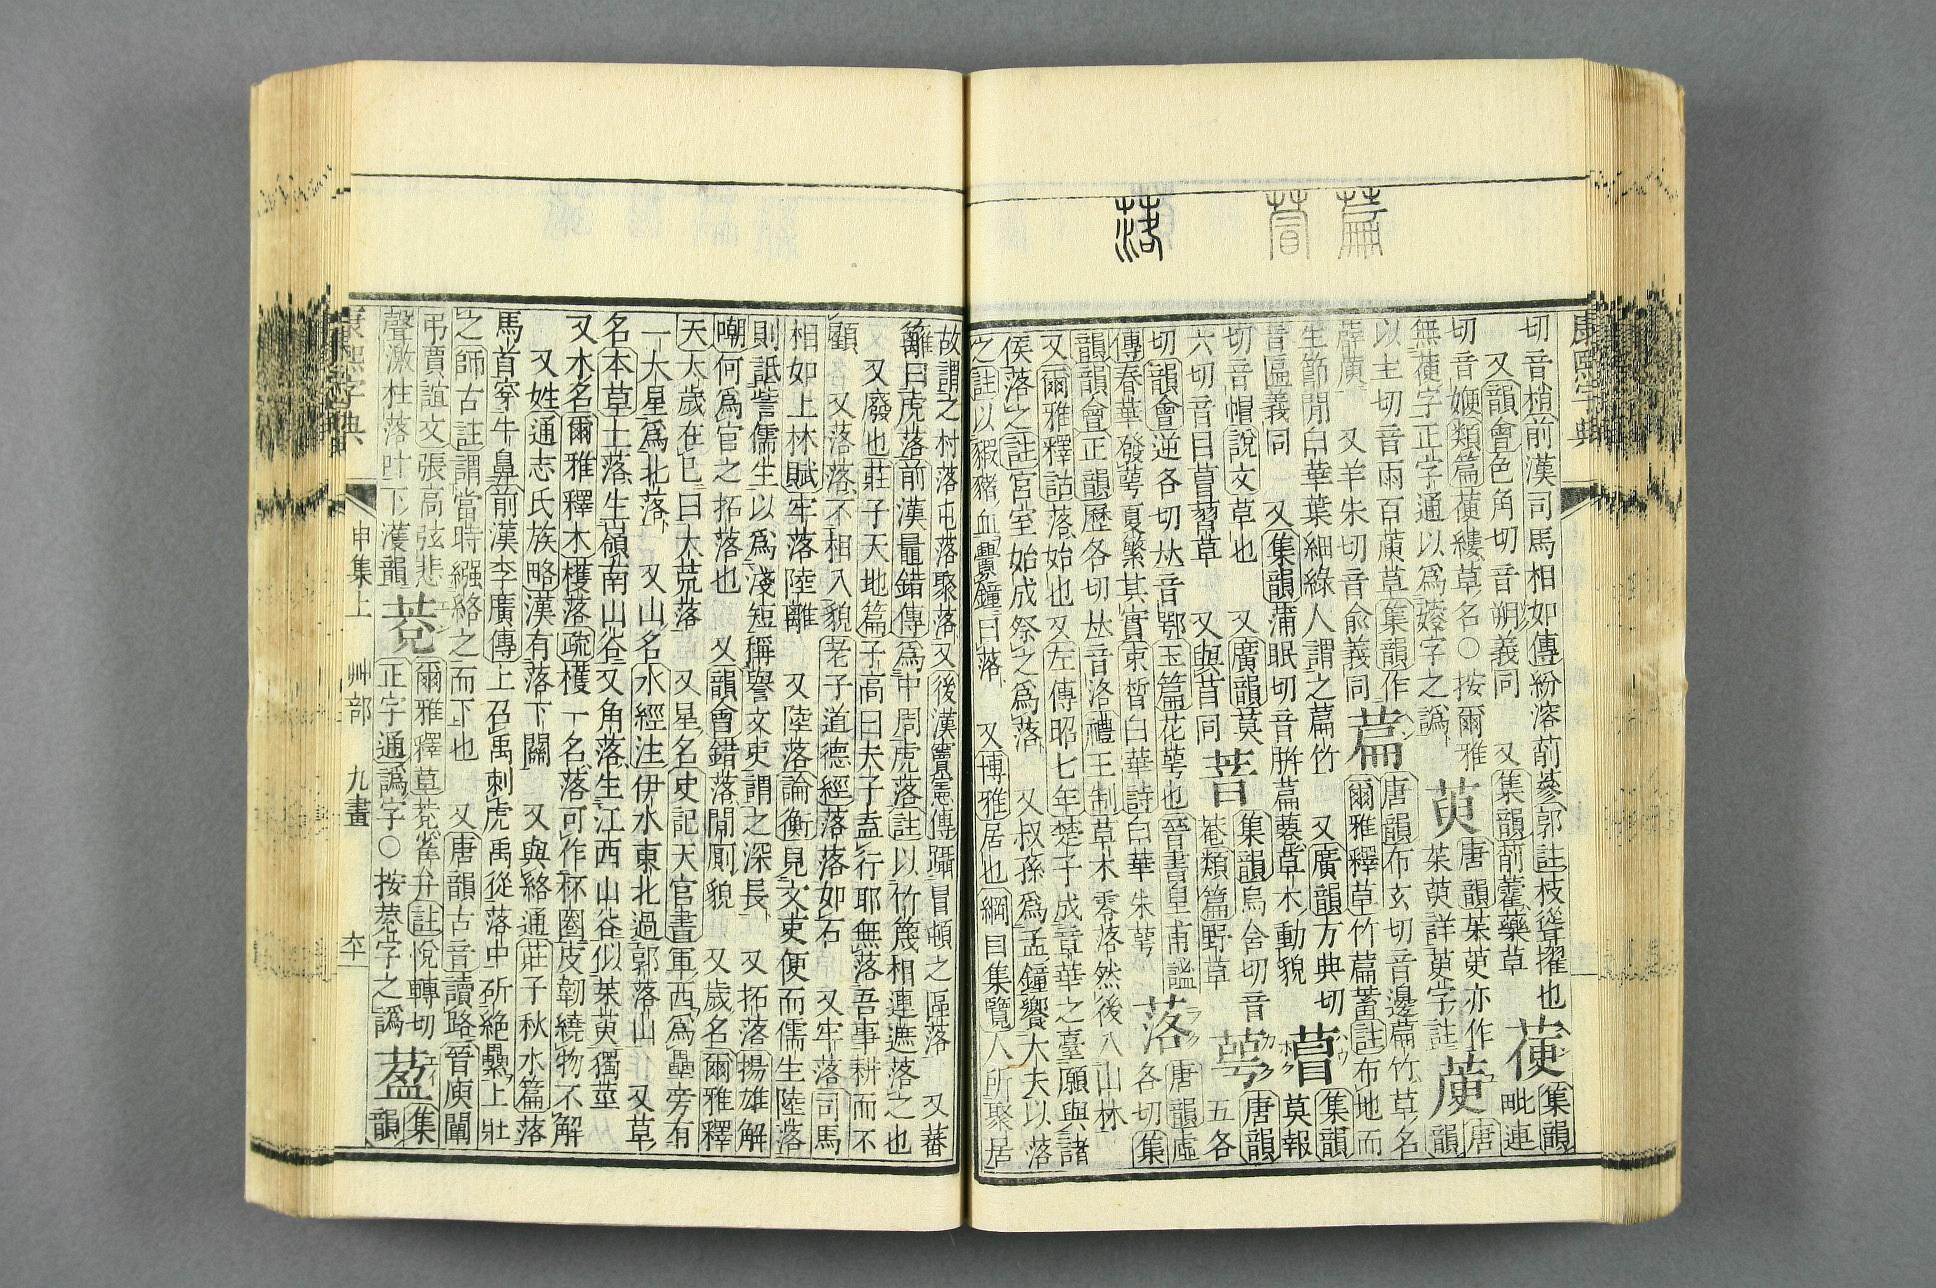 篇 萺 落
康熙字典
切音梢前漢司馬相如傳紛溶萷蔘郭註枝竦擢也
又韻會色角切音朔義同 又集韻萷藋藥草
葥
集韻
毗連
切音㛹類篇葥縷草名○按爾雅
無葥字正字通以爲蔓字之譌
萸
唐韻茱萸亦作
茱萸詳萸字註
萮
唐韻
以主切音雨百萮草集韻作
蕍蕍 又羊朱切音俞義同
萹
唐韻布玄切音邊萹竹草名
爾雅釋草竹萹蓄註布地而
生節閒白華葉細綠人謂之萹竹 又廣韻方典切
音匾義同 又集韻蒲眠切音騈萹蓄草木動貌
萺
集韻
莫報
切音帽說文草也 又廣韻莫
六切音目萺蓿草 又與苜同
萻
集韻烏含切音
菴類篇野草
萼
唐韻
五各
切韻會逆各切𠀤音鄂玉篇花萼也晉書皇甫謐
傳春華發萼夏繁其實束晳白華詩白華朱萼
落
唐韻盧
各切集
韻韻會正韻歷各切𠀤音洛禮王制草木零落然後入山林
又爾雅釋詁落始也又左傳昭七年楚子成章華之臺願與諸
侯落之註宮室始成祭之爲落 又叔孫爲孟鐘饗大夫以落
之註以豭豬血釁鐘曰落 又博雅居也綱目集覽人所聚居
故謂之村落屯落聚落又後漢竇憲傳躡冒頓之區落 又蕃
籬曰虎落前漢鼂錯傳爲中周虎落註以竹篾相連遮落之也
又廢也莊子天地篇子高曰夫子盍行耶無落吾事耕而不
顧 又落落不相入貌老子道德經落落如石 又牢落司馬
相如上林賦牢落陸離 又陸落論衡見文吏便而儒生陸落
則詆訾儒生以爲淺短稱譽文吏謂之深長 又拓落揚雄解
嘲何爲官之拓落也 又韻會錯落閒廁貌 又歲名爾雅釋
天太歲在巳曰大荒落 又星名史記天官書軍西爲壘旁有
一大星爲北落 又山名水經注伊水東北過郭落山 又草
名本草土落生嶺南山谷又角落生江西山谷似茱萸獨莖
又木名爾雅釋木檴落疏檴一名落可作杯圈皮韌繞物不解
又姓通志氏族略漢有落下閎 又與絡通莊子秋水篇落
馬首穿牛鼻前漢李廣傳上召禹刺虎禹從落中斫絕纍上壯
之師古註謂當時繈絡之而下也 又唐韻古音讀路晉庾闡
弔賈誼文張高弦悲
聲激柱落叶下濩韻
莌
爾雅釋草莌雀弁註悅轉切
正字通譌字○按莌字之譌
葢
集
韻
康熙字典
申集上 艸部 九畫